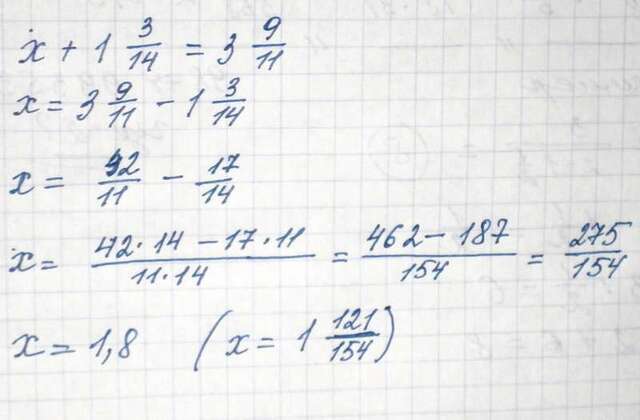 x + 1 3/14 = 3 9/11
x = 3 9/11 − 1 3/14
x = 42/11 − 17/14
x = (42·14 − 17·11)/(11·14) = (462 − 187)/154 = 275/154
x = 1,8 (x = 1 121/154)